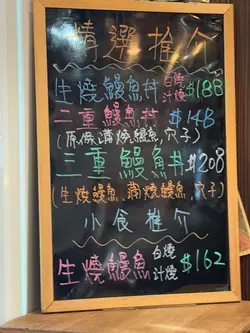 精選推介
生燒鰻魚丼 白燒 汁燒 $188
二重鰻魚丼 $148
(原條蒲燒鰻魚、穴子)
三重鰻魚丼 $208
(生燒鰻魚、蒲燒鰻魚、穴子)
小食推介
生燒鰻魚 白燒 汁燒 $162